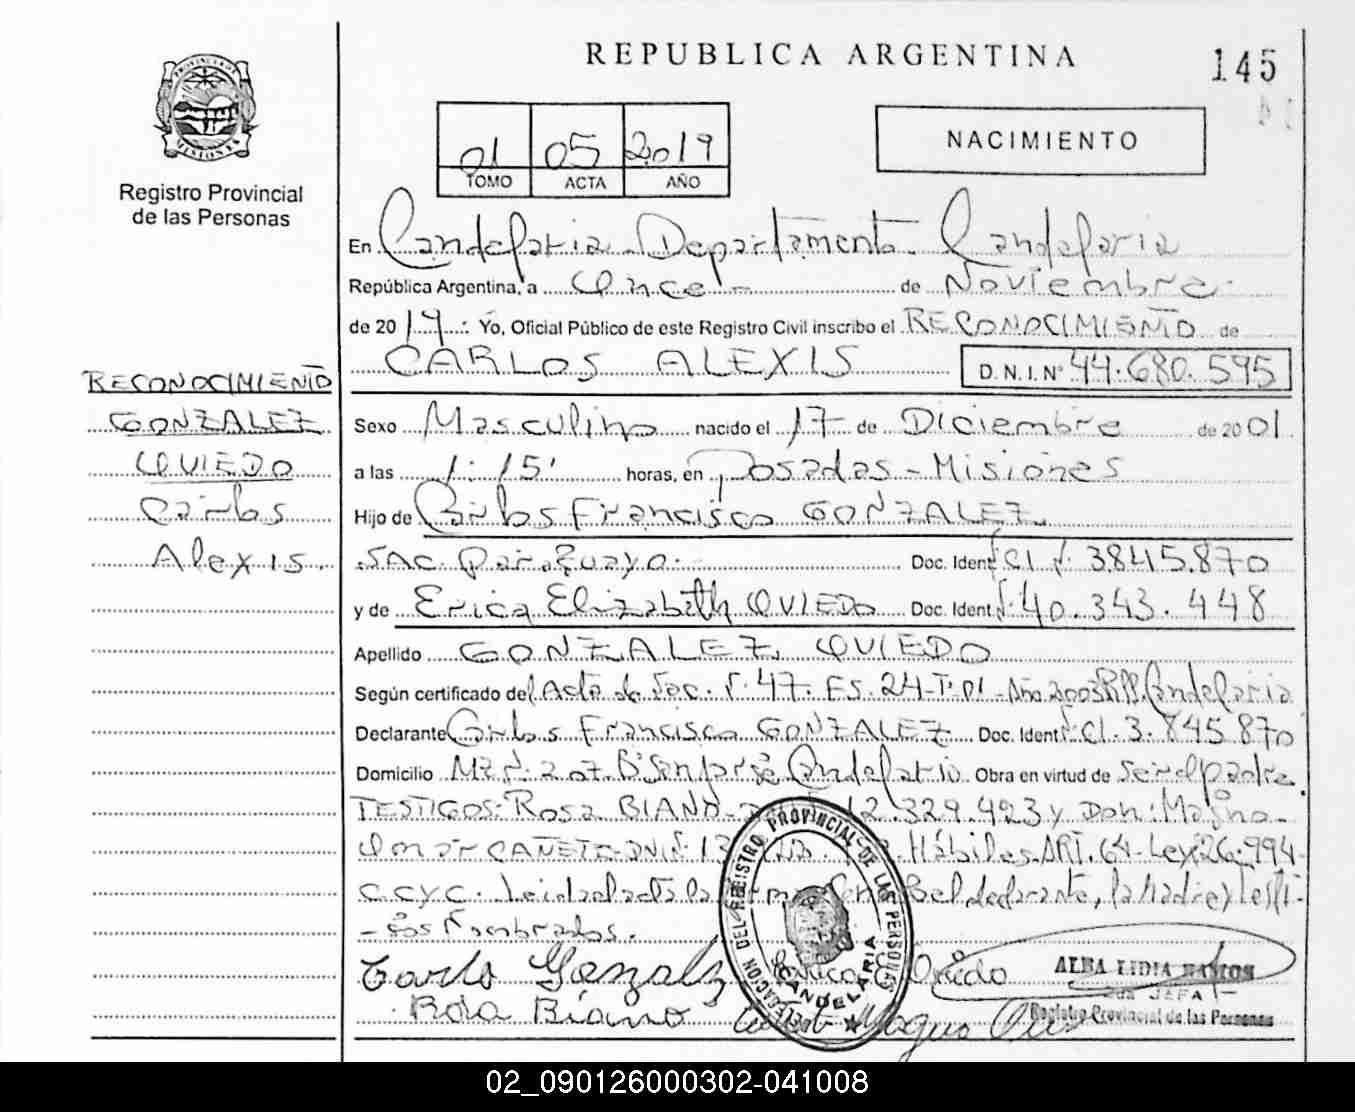 REPUBLICA ARGENTINA
145
PROVINCIA DE
MISIONES
Registro Provincial
de las Personas
01 05 2019
TOMO ACTA AÑO
NACIMIENTO
En Candelaria - Departamento Candelaria
República Argentina, a Once - de Noviembre
de 2019 . Yo, Oficial Público de este Registro Civil inscribo el RECONOCIMIENTO de
CARLOS ALEXIS D.N.I.Nº 44.680.595
RECONOCIMIENTO
GONZALEZ
OVIEDO
Carlos
Alexis.
Sexo Masculino nacido el 17 de Diciembre de 2001
a las 1:15' horas, en Posadas - Misiones
Hijo de Carlos Francisco GONZALEZ
SAC. Paraguayo. Doc. Ident. CI Nº 3845.870
y de Erica Elizabeth OVIEDO Doc. Ident. Nº 40.343.448
Apellido GONZALEZ OVIEDO
Según certificado del Acta de Nac. Nº 47. Fs. 24-Tº 01 - Año 2003 Candelaria
Declarante Carlos Francisco GONZALEZ Doc. Ident. Nº CI. 3.845.870
Domicilio Mz Nº 207 Bº San José Candelaria Obra en virtud de Ser el padre
TESTIGOS: Rosa BIANO - 12.329.423 y Don: Magno
Omar CAÑETE - DNI Nº 13 Hábiles ART. 64 - Ley 26.994
C.C y C. Leida el acta la firman el declarante, la Madre y Testi-
gos Nombrados.
Carlos Gonzalez Erica E Oviedo
Rosa Biano Magno
ALBA LIDIA RAMOS
JEFA
Registro Provincial de las Personas
DELEGACION DEL REGISTRO PROVINCIAL DE LAS PERSONAS
CANDELARIA
02_090126000302-041008